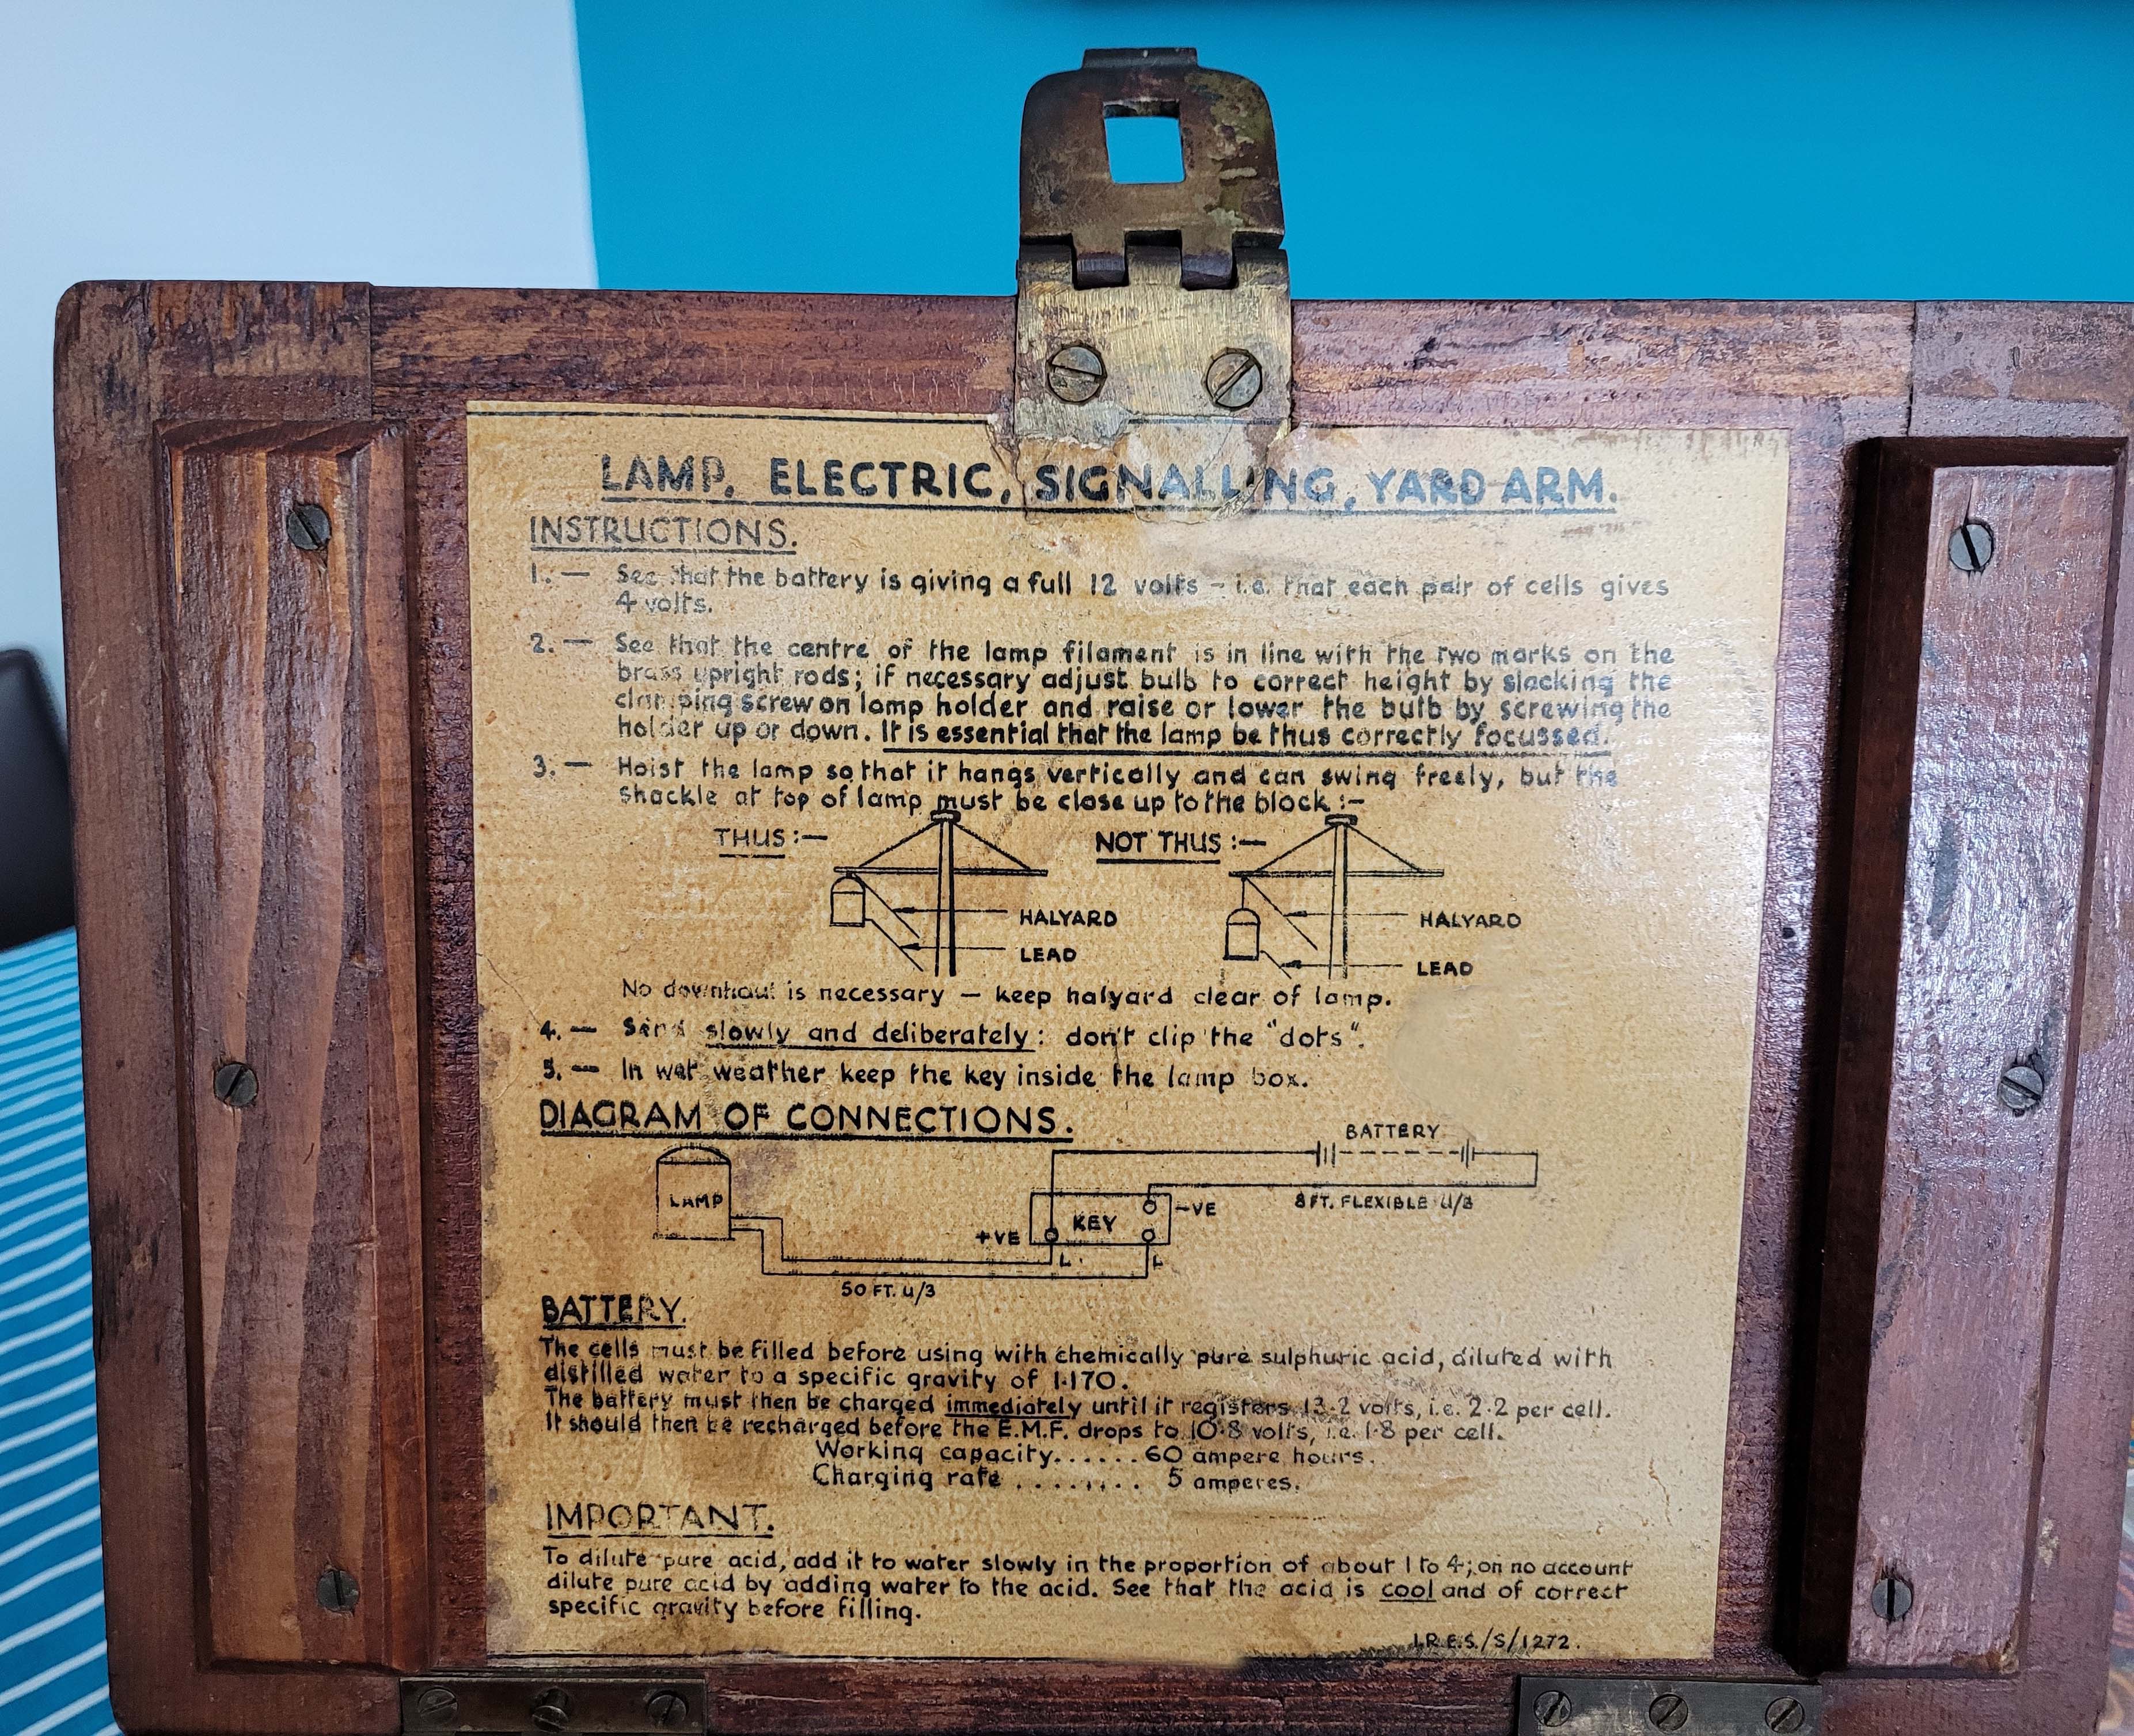 LAMP, ELECTRIC, SIGNALLING, YARD ARM.
INSTRUCTIONS.
1. — See that the battery is giving a full 12 volts – i.e. that each pair of cells gives
4 volts.
2. — See that the centre of the lamp filament is in line with the two marks on the
brass upright rods; if necessary adjust bulb to correct height by slacking the
clamping screw on lamp holder and raise or lower the bulb by screwing the
holder up or down. It is essential that the lamp be thus correctly focussed.
3. — Hoist the lamp so that it hangs vertically and can swing freely, but the
shackle at top of lamp must be close up to the block :–
THUS :— NOT THUS :—
HALYARD HALYARD
LEAD LEAD
No downhaul is necessary — keep halyard clear of lamp.
4. — Send slowly and deliberately: don't clip the "dots".
5. — In wet weather keep the key inside the lamp box.
DIAGRAM OF CONNECTIONS.
BATTERY
LAMP
8FT. FLEXIBLE U/3
–VE
KEY
+VE
L L
50 FT. U/3
BATTERY.
The cells must be filled before using with chemically pure sulphuric acid, diluted with
distilled water to a specific gravity of 1·170.
The battery must then be charged immediately until it registers 13·2 volts, i.e. 2·2 per cell.
It should then be recharged before the E.M.F. drops to 10·8 volts, i.e. 1·8 per cell.
Working capacity...... 60 ampere hours.
Charging rate ........ 5 amperes.
IMPORTANT.
To dilute pure acid, add it to water slowly in the proportion of about 1 to 4; on no account
dilute pure acid by adding water to the acid. See that the acid is cool and of correct
specific gravity before filling.
I.R.E.S./S/1272.